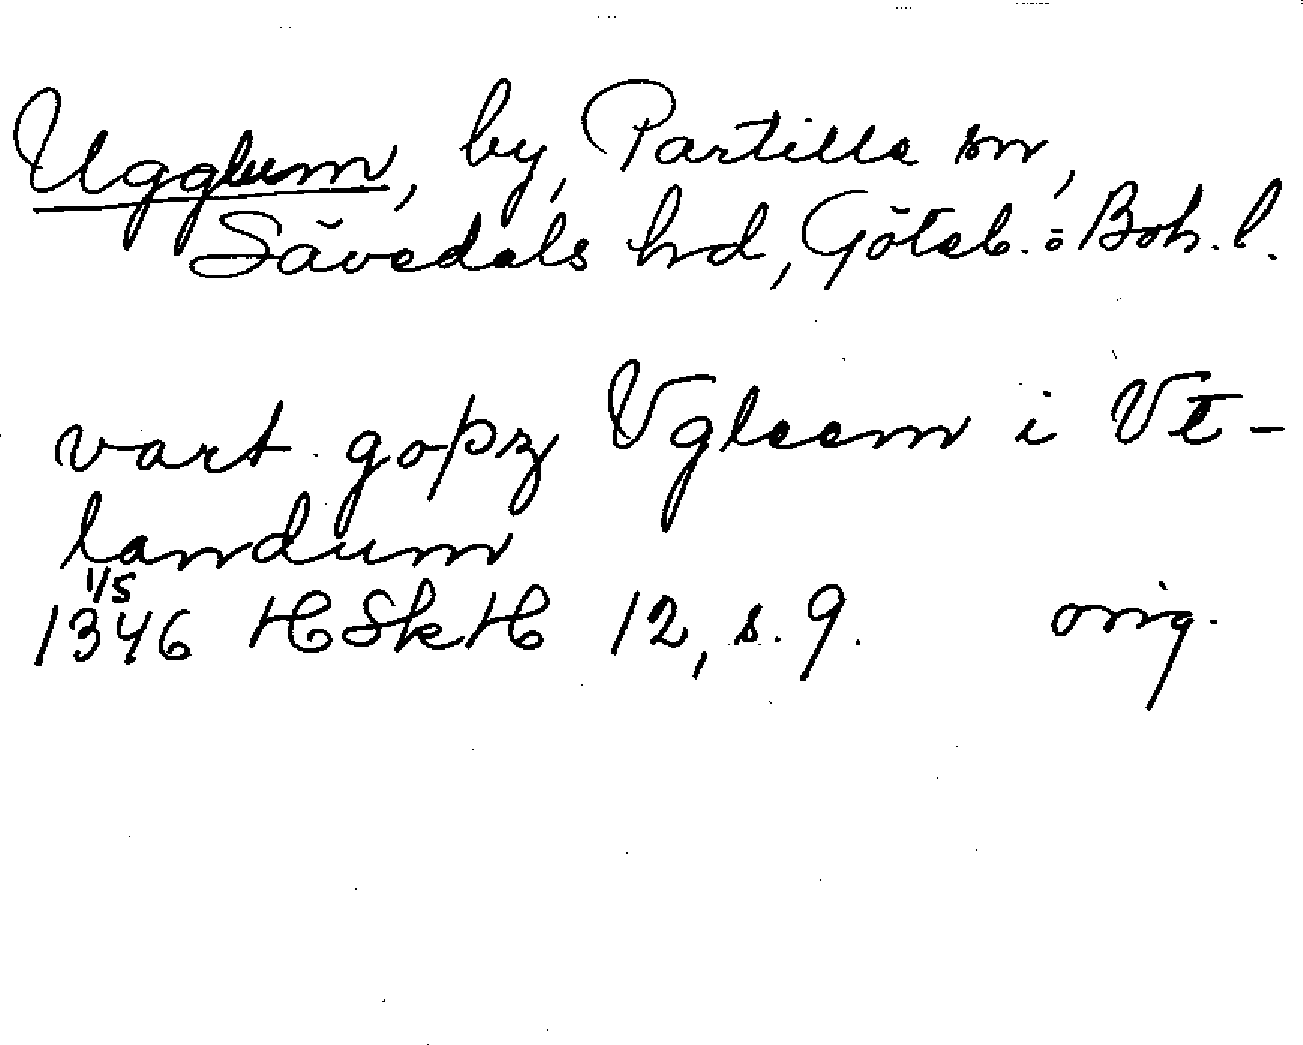 Ugglum, by, Partille sn,
Sävedals hd, Göteb. o Boh. l.
vart goþz Vgleem i Vt-
landum
1/5
1346 HSkH 12, s. 9. orig.